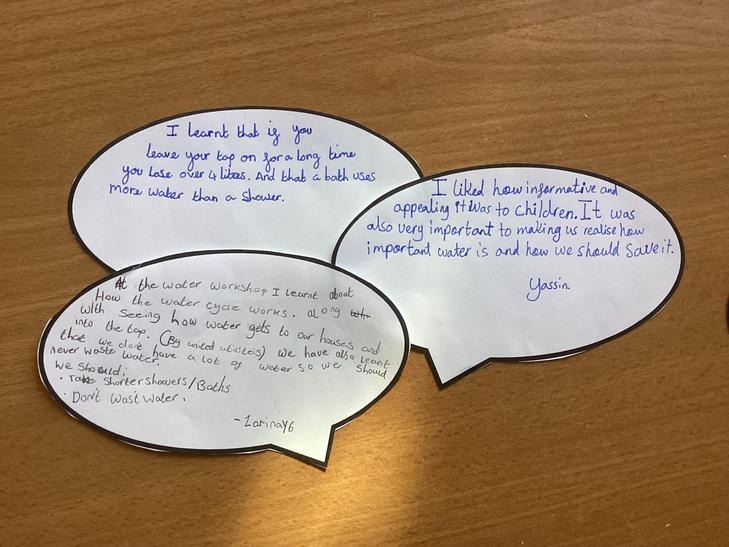 I learnt that if you
leave your tap on for a long time
you lose over 4 litres. And that a bath uses
more water than a shower.
I liked how informative and
appealing it was to children. It was
also very important to making us realise how
important water is and how we should save it.
Yassin.
At the water workshop I learnt about
How the water cycle works. along
with seeing how water gets to our houses and
into the tap. (By united utilsteis) we have also learnt
that we don't have a lot of water so we should
never waste water.
We should:
· Take shorter showers/Baths
· Don't wast water.
- Zarina Y6